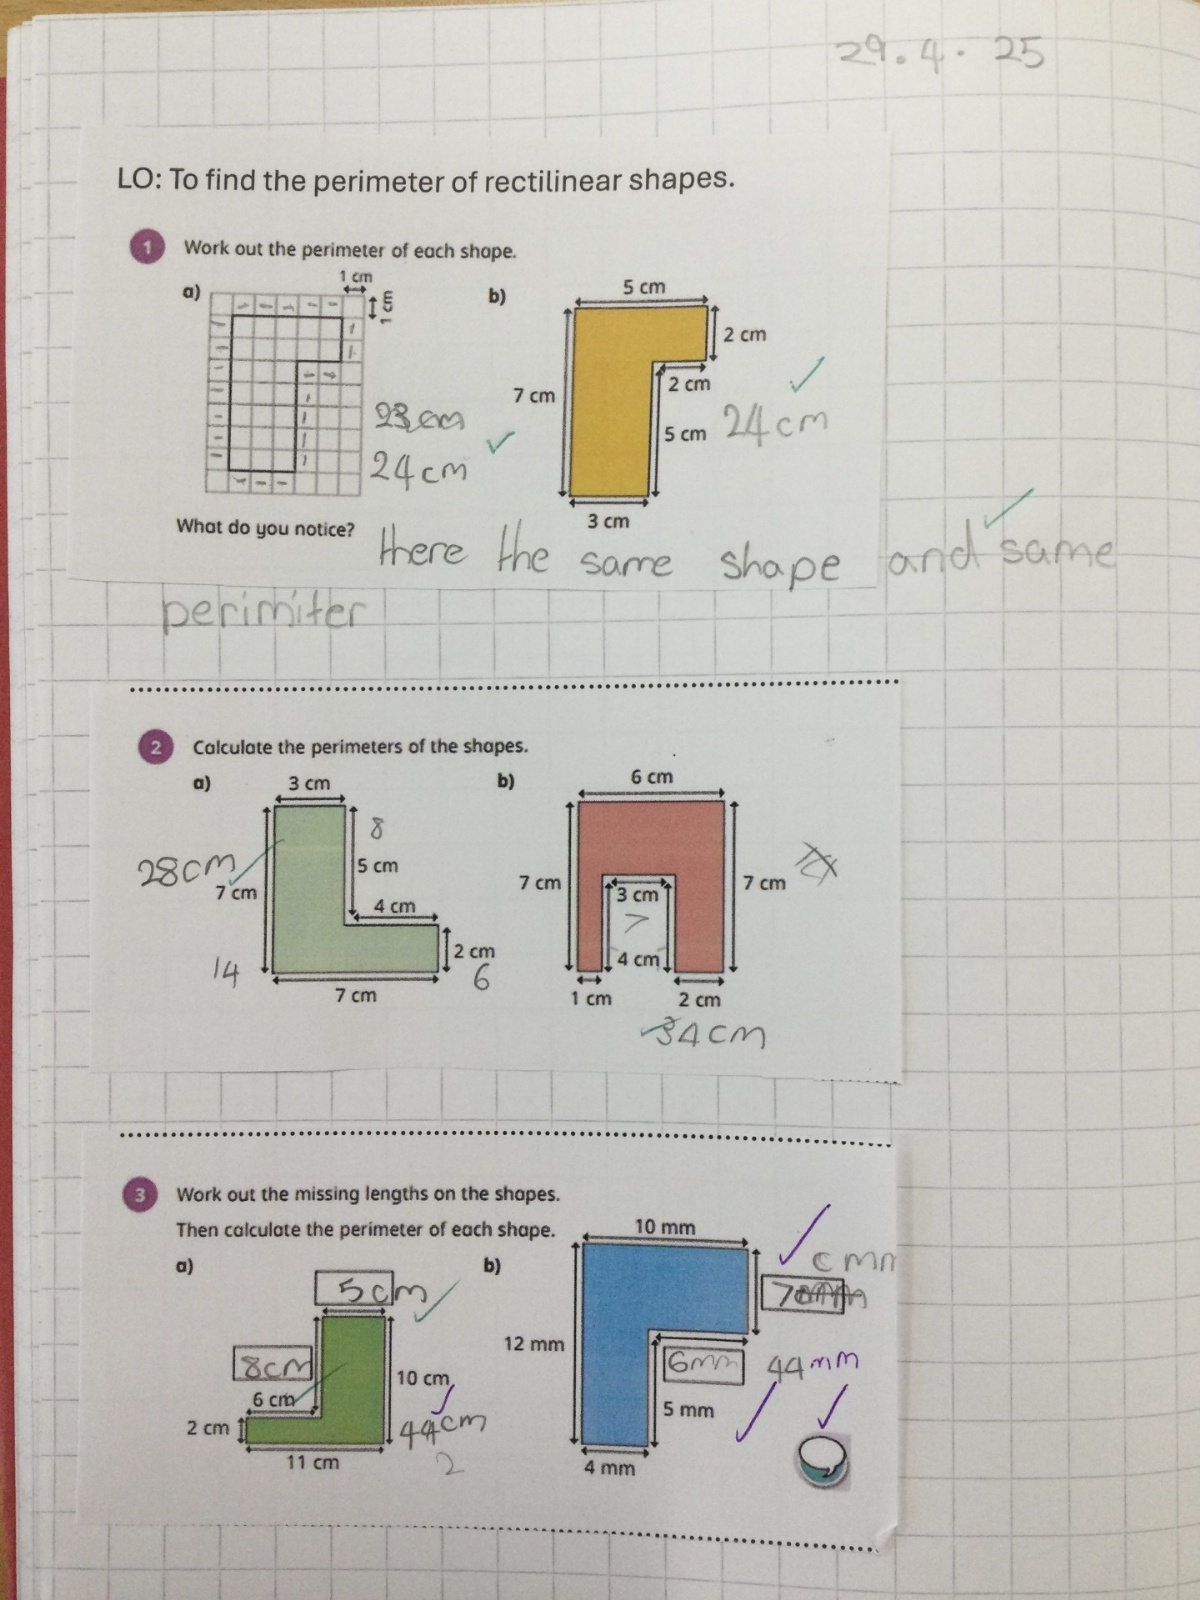 29.4.25
LO: To find the perimeter of rectilinear shapes.
1 Work out the perimeter of each shape.
a)
1 cm
1 cm
23cm
24cm
b)
5 cm
2 cm
7 cm
2 cm
5 cm
24cm
3 cm
What do you notice? there the same shape and same
perimiter
2 Calculate the perimeters of the shapes.
a)
3 cm
8
5 cm
28cm
7 cm
4 cm
2 cm
14
6
7 cm
b)
6 cm
7 cm
7 cm
3 cm
7
4 cm
1 cm
2 cm
34cm
3 Work out the missing lengths on the shapes.
Then calculate the perimeter of each shape.
a)
5cm
8cm
10 cm
6 cm
2 cm
44cm
11 cm
2
b)
10 mm
7
12 mm
6mm
44mm
5 mm
4 mm